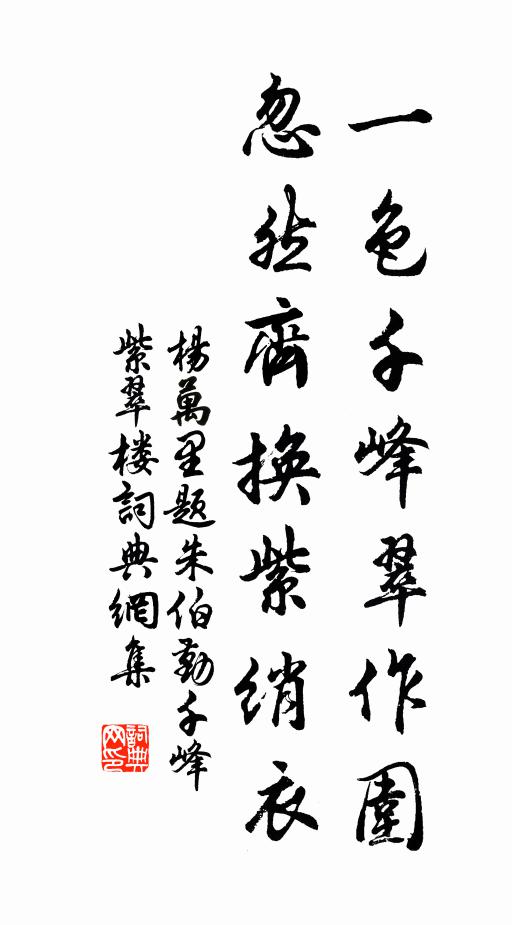 一色千峰翠作圍
忽然齊換紫綃衣
楊萬里題朱伯勤千峰
紫翠樓詞典網集
詞典
网印